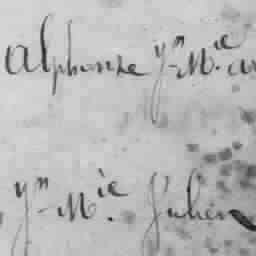 Alphonse Yⁿ-Mⁱᵉ.
Yⁿ-Mⁱᵉ. Julien